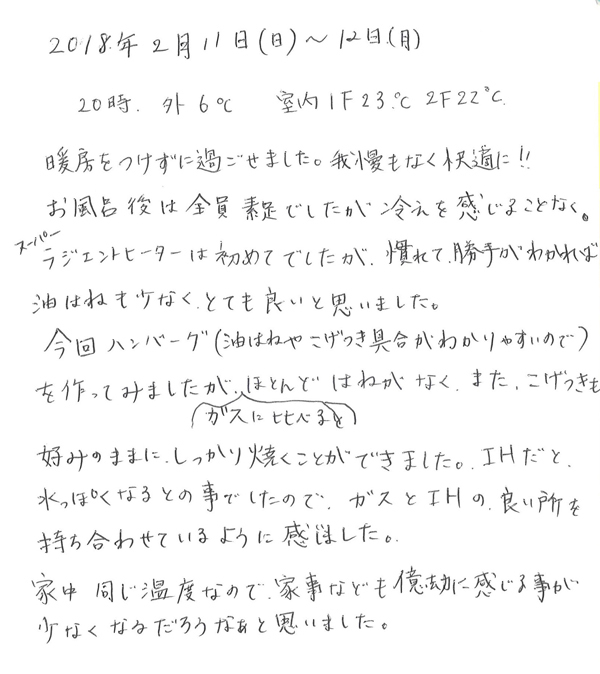 2018年2月11日(日)～12日(月)
20時. 外6℃ 室内1F23.℃ 2F22℃.
暖房をつけずに過ごせました。我慢もなく快適に!!
お風呂後は全員素足でしたが冷えを感じることなく。
スーパー
ラジエントヒーターは初めてでしたが、慣れて、勝手がわかれば
油はねも少なく、とても良いと思いました。
今回ハンバーグ(油はねやこげつき具合がわかりやすいので)
を作ってみましたが、ほとんどはねがなく、また、こげつきも
(ガスに比べると)
好みのままに、しっかり焼くことができました。IHだと、
水っぽくなるとの事でしたので、ガスとIHの、良い所を
持ち合わせているように感じました。
家中同じ温度なので、家事なども億劫に感じる事が
少なくなるだろうなぁと思いました。